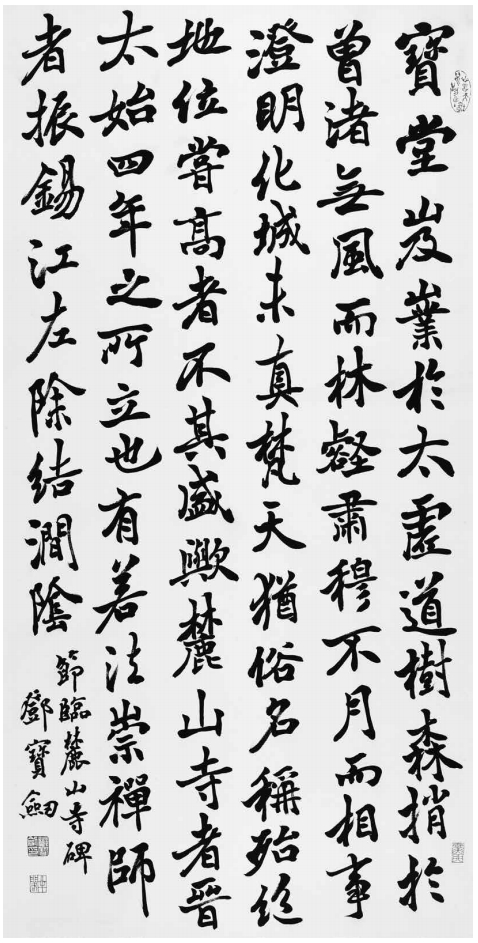 寶堂岌嶪於太虛道樹森捎於
曾渚無風而林壑肅穆不月而相事
澄明化城未真梵天猶俗名稱殆絕
地位嘗高者不其盛歟麓山寺者晉
太始四年之所立也有若法崇禪師
者振錫江左除結澗陰
節臨麓山寺碑
鄧寶劍